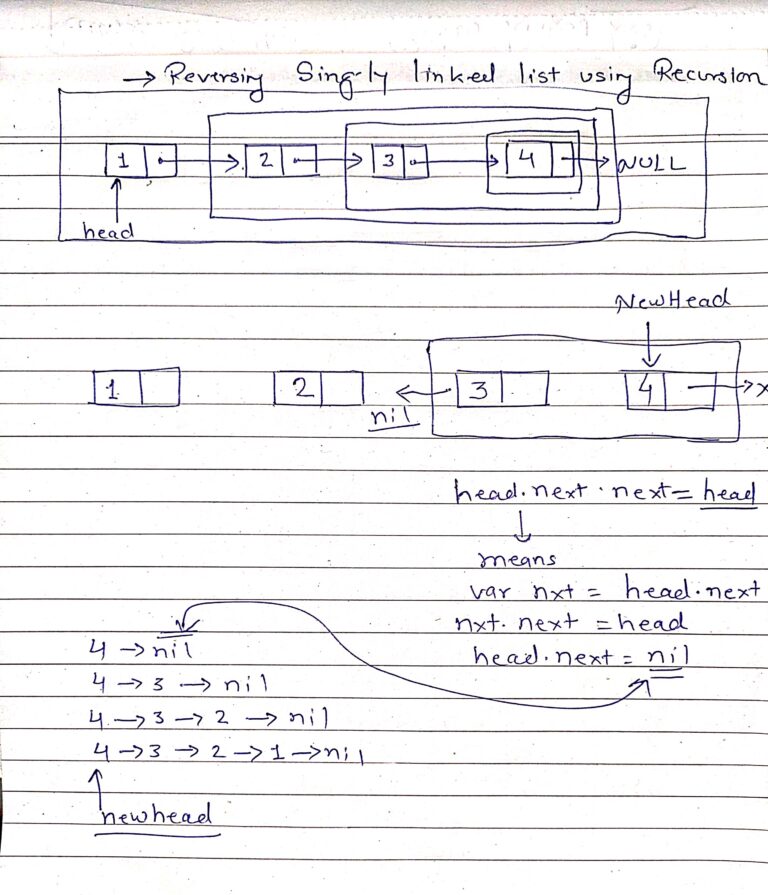 → Reversing Singly linked list using Recursion
1 2 3 4 NULL
head
NewHead
1 2 3 4 x
nil
head.next.next = head
means
var nxt = head.next
nxt.next = head
head.next = nil
4 → nil
4 → 3 → nil
4 → 3 → 2 → nil
4 → 3 → 2 → 1 → nil
newhead